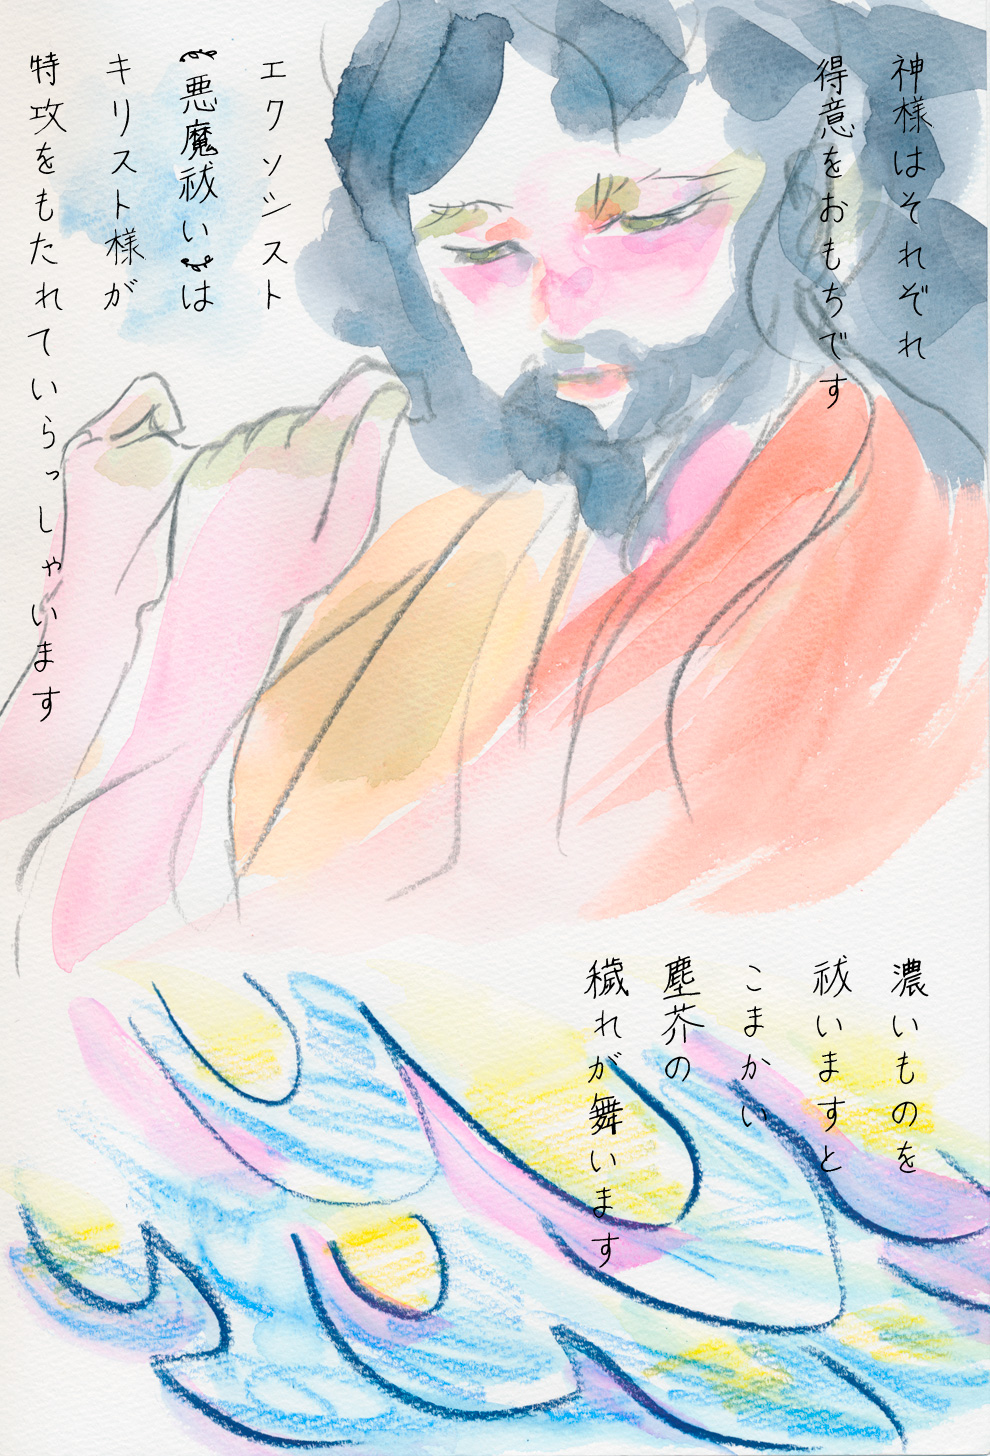 神様はそれぞれ
得意をおもちです
エクソシスト
悪魔祓いは
キリスト様が
特攻をもたれていらっしゃいます
濃いものを
祓いますと
こまかい
塵芥の
穢れが舞います